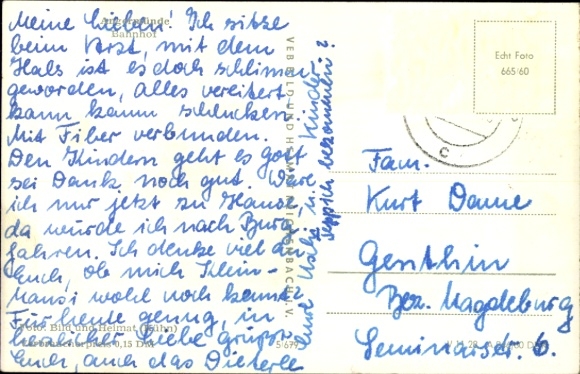 Angermünde
Bahnhof
Meine Lieben! Ich sitze
beim Arzt, mit dem
Hals ist es doch schlimm
geworden, alles vereitert
kann kaum schlucken
Mit Fieber verbunden.
Den Kindern geht es gott
sei Dank noch gut. Wäre
ich nur jetzt zu Hause,
da würde ich nach Burg
fahren. Ich denke viel an
Euch, ob mich Klein-
Mansi wohl noch kennt?
Für heute genug, in
herzlicher Liebe grüßt
Euch, auch das Dieterle
Eure u. Kinder
Teppich bekommen?
Foto: Bild und Heimat (Kühn)
Verbraucherpreis 0,15 DM
5/679
VEB BILD UND HEIMAT REICHENBACH I. V.
Echt Foto
665/60
Fam.
Kurt Damme
Genthin
Bez. Magdeburg
Seminarstr. 6.